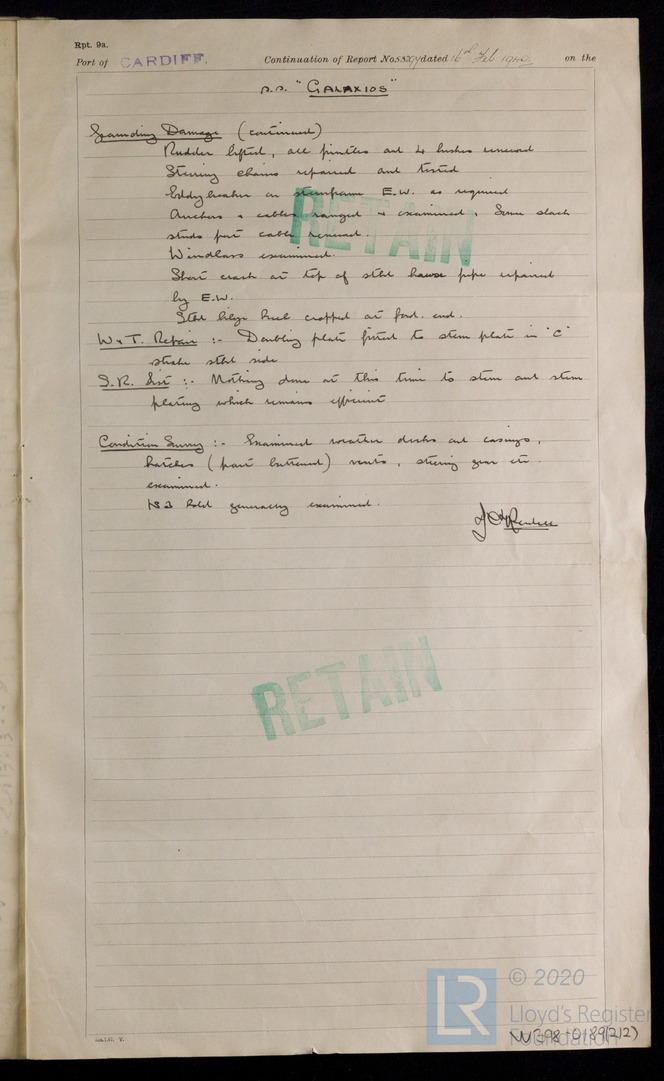 Rpt. 9a.
Port of CARDIFF. Continuation of Report No. dated 16th Feb on the
s.s. "GALAXIOS"
Grounding Damage (continued)
Rudder lifted, all pintles and 4 bushes renewed
Steering chains repaired and tested
Eddy breaker on sternframe E.W. as required
Anchors & cables ranged & examined, Some slack
studs port cable renewed.
Windlass examined.
Short crack at top of stbd hawse pipe repaired
by E.W.
Stbd bilge keel cropped at ford. end.
W & T. Repair :- Doubling plate fitted to stem plate in "C"
strake stbd side
S.R. List :- Nothing done at this time to stem and stem
plating which remains efficient
Condition Survey :- Examined weather decks and casings,
hatches (part battened) vents, steering gear etc.
examined.
No 3 hold generally examined.
RETAIN
RETAIN
LR © 2020
Lloyd's Register
Foundation